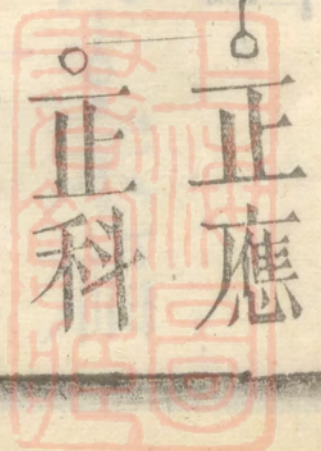 正應
正科